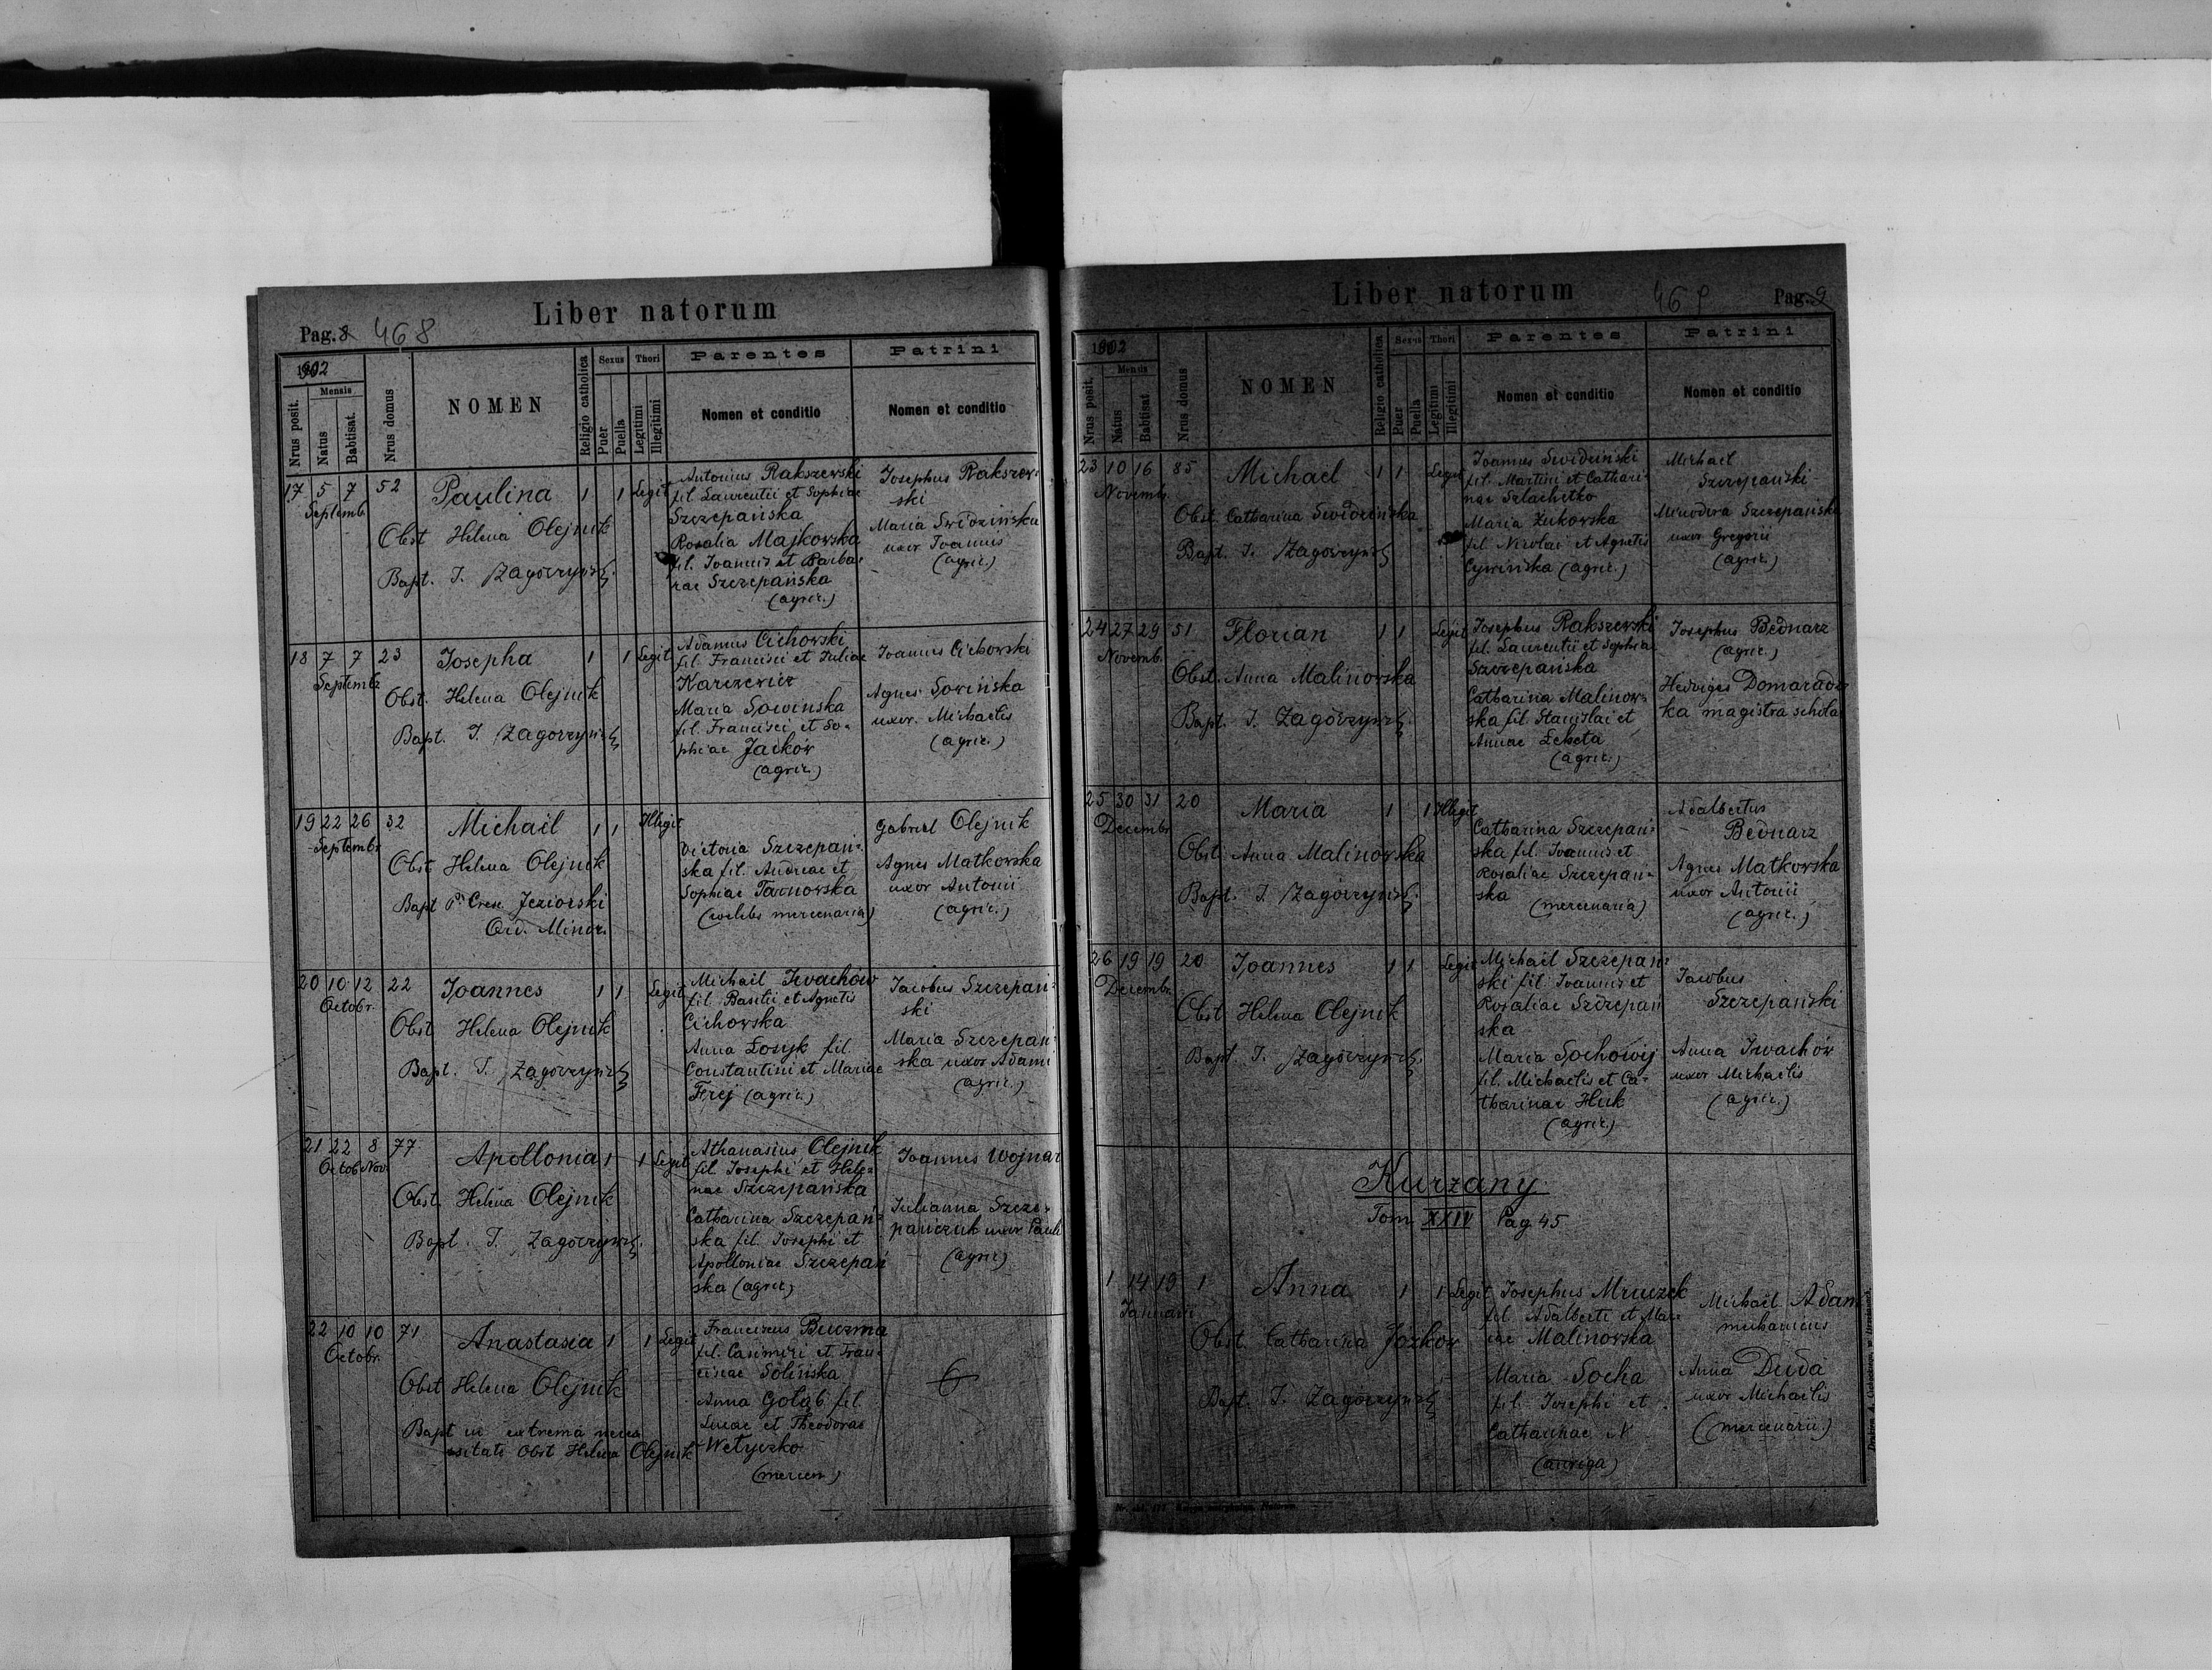 Liber natorum
Pag. 8 468
1902
Nrus posit.
Mensis
Natus
Babtisat.
Nrus domus
NOMEN
Religio catholica
Sexus
Puer
Puella
Thori
Legitimi
Illegitimi
Parentes
Nomen et conditio
Patrini
Nomen et conditio
17 5 7 52 Paulina 1 1 Legit
Septemb.
Obst Helena Olejnik
Bapt. J. Zagórzyński
Antonius Rakszewski
fil. Laurentii et Sophiae
Szczepańska
Rosalia Majkowska
fil. Joannis et Barba-
rae Szczepańska
(agric.)
Josephus Rakszew-
ski
Maria Swidzińska
uxor Joannis
(agric.)
18 7 7 23 Josepha 1 1 Legit
Septemb.
Obst. Helena Olejnik
Bapt. J. Zagórzyński
Adamus Cichowski
fil. Francisci et Juliae
Karczewicz
Maria Sowinska
fil. Francisci et So-
phiae Jacków
(agric.)
Joannes Cichowski
Agnes Sowińska
uxor. Michaelis
(agric.)
19 22 26 32 Michaël 1 1 Illegit
Septembr
Obst Helena Olejnik
Bapt P. Cresc. Jeziorski
Ord. Minor.
Victoria Szczepań-
ska fil. Andreae et
Sophiae Tarnowska
(coelebs mercenaria)
Gabriel Olejnik
Agnes Matkowska
uxor Antonii
(agric.)
20 10 12 22 Joannes 1 1 Legit
Octobr.
Obst Helena Olejnik
Bapt. J. Zagórzyński
Michaël Iwachów
fil. Basilii et Agnetis
Cichowska
Anna Łosyk fil.
Constantini et Mariae
Frej (agric.)
Jacobus Szczepań-
ski
Maria Szczepań-
ska uxor Adami
(agric.)
21 22 8 77 Apollonia 1 1 Legit
Octob Nov.
Obst. Helena Olejnik
Bapt. J. Zagórzyński
Athanasius Olejnik
fil. Josephi et Hele-
nae Szczepańska
Catharina Szczepań-
ska fil. Josephi et
Apolloniae Szczepań
ska (agric)
Joannes Wojnar
Julianna Szcze-
pańczuk uxor Pauli
(agric)
22 10 10 71 Anastasia 1 1 Legit
Octobr.
Obst Helena Olejnik
Bapt in extrema nece-
ssitate Obst Helena Olejnik
Franciscus Buczma
fil. Casimiri et Fran-
ciscae Solińska
Anna Gołąb fil.
Lucae et Theodorae
Wetyczko
(mercen)
Liber natorum
469 Pag. 9
1902
Nrus posit.
Mensis
Natus
Babtisat.
Nrus domus
NOMEN
Religio catholica
Sexus
Puer
Puella
Thori
Legitimi
Illegitimi
Parentes
Nomen et conditio
Patrini
Nomen et conditio
23 10 16 85 Michael 1 1 Legit
Novemb.
Obst. Catharina Swidzińska
Bapt. J. Zagórzyński
Joannes Swidziński
fil. Martini et Cathari-
nae Szlachetko
Maria Żukowska
fil. Nicolai et Agnetis
Cywińska (agric.)
Michaël
Szczepański
Minodora Szczepańska
uxor Gregorii
(agric.)
24 27 29 51 Florian 1 1 Legit
Novemb.
Obst. Anna Malinowska
Bapt. J. Zagórzyński
Josephus Rakszewski
fil. Laurentii et Sophiae
Szczepańska
Catharina Malinow-
ska fil Stanislai et
Annae Lebeta
(agric.)
Josephus Bednarz
(agric.)
Hedviges Domaradz-
ka magistra schola
25 30 31 20 Maria 1 1 Illegit
Decembr
Obst. Anna Malinowska
Bapt. J. Zagórzyński
Catharina Szczepań-
ska fil. Joannis et
Rosaliae Szczepań-
ska
(mercenaria)
Adalbertus
Bednarz
Agnes Matkowska
uxor Antonii
(agric.)
26 19 19 20 Joannes 1 1 Legit
Decembr
Obst Helena Olejnik
Bapt. J. Zagórzyński
Michaël Szczepań-
ski fil Joannis et
Rosaliae Szczepań
ska
Maria Sochowij
fil. Michaelis et Ca-
tharinae Huk
(agric.)
Jacobus
Szczepański
Anna Iwachów
uxor Michaelis
(agric.)
Kurzany
Tom XXIV Pag. 45
1 14 19 1 Anna 1 1 Legit
Januarii
Obst. Catharina Jożków
Bapt. J. Zagórzyński
Josephus Mruczek
fil. Adalberti et Mari
ae Malinowska
Maria Socha
fil. Josephi et
Catharinae N
(auriga)
Michaël Adam
mechanicus
Anna Duda
uxor Michaelis
(mercenarii)